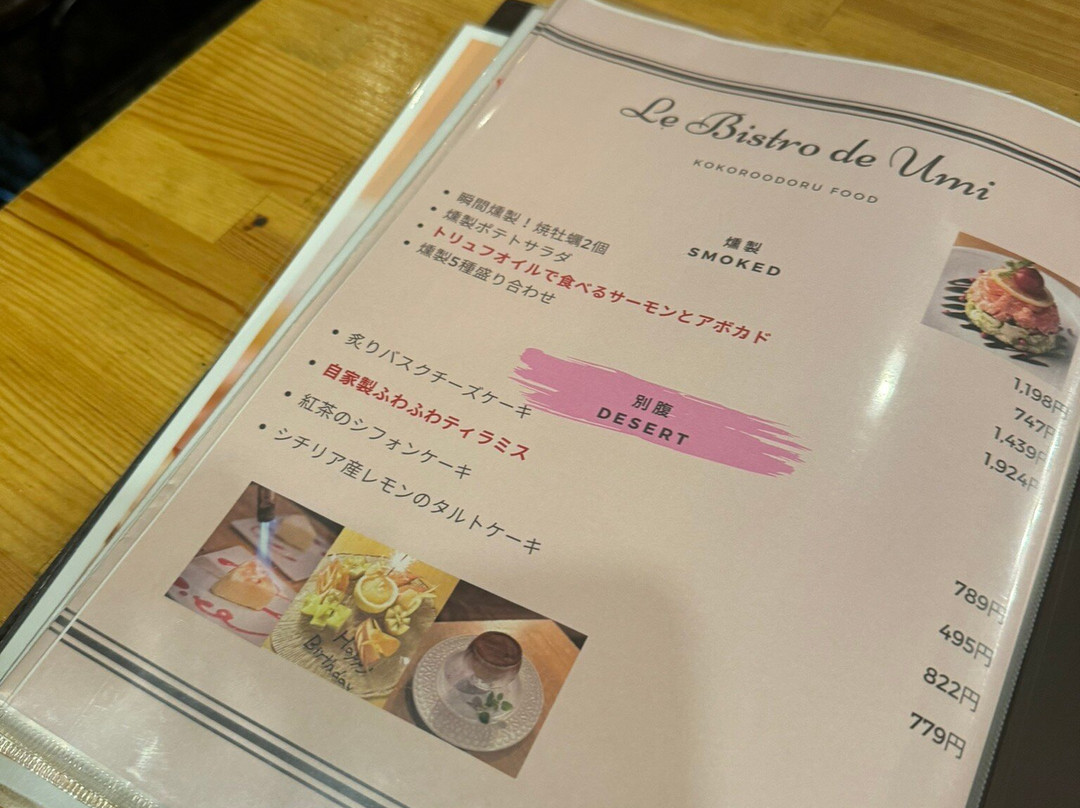 Le Bistro de Umi
KOKOROODORU FOOD
燻製
SMOKED
・瞬間燻製！焼牡蠣2個
1,198円
・燻製ポテトサラダ
747円
・トリュフオイルで食べるサーモンとアボカド
1,439円
・燻製5種盛り合わせ
1.924円
別腹
DESERT
・炙りバスクチーズケーキ
789円
・自家製ふわふわティラミス
495円
・紅茶のシフォンケーキ
822円
・シチリア産レモンのタルトケーキ
779円
Happy
Birthday